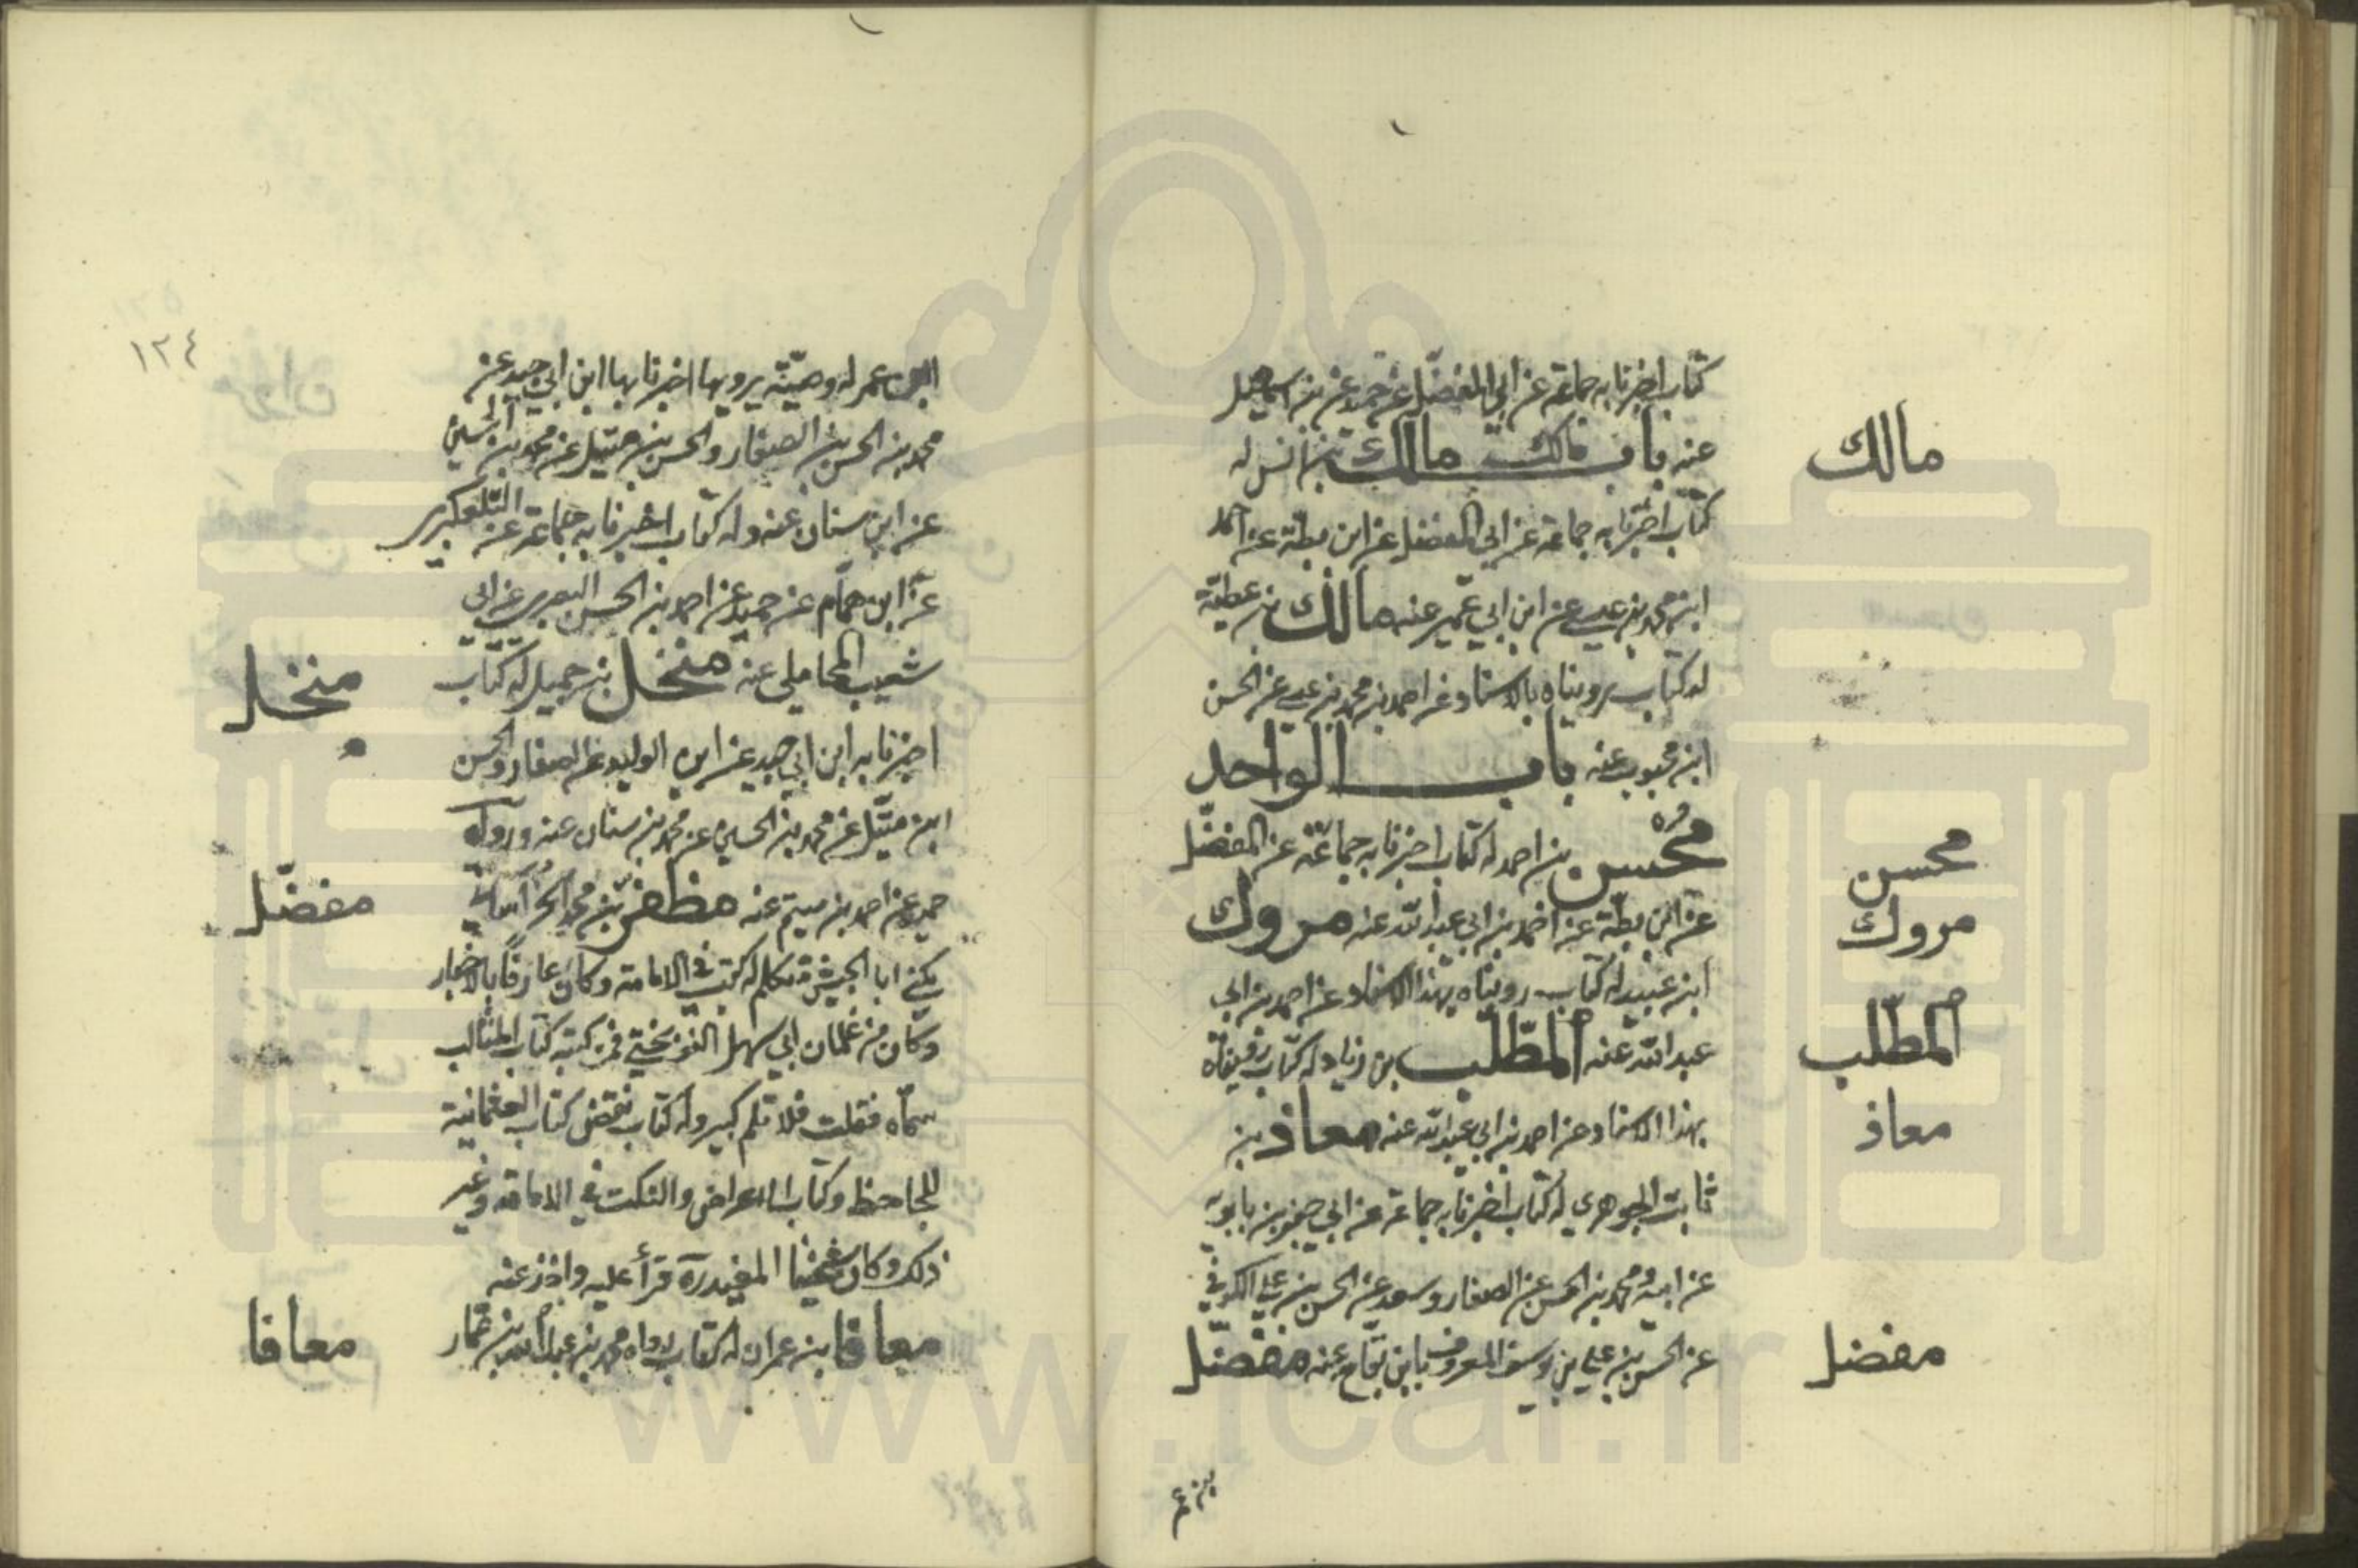 كتاب اخبرنا به جماعة عن ابي المفضل عن حميد عن بن اسمعيل
عنه باب مالك مالك بن انس له
مالك
كتاب اخبرنا به جماعة عن ابي المفضل عن ابن بطة عن احمد
ابن محمد بن عيسى عن ابن ابي عمير عنه مالك بن عطية
له كتاب رويناه بالاسناد عن احمد بن محمد بن عيسى عن الحسن
ابن محبوب عنه باب الواحد
محسن بن احمد له كتاب اخبرنا به جماعة عن المفضل
محسن
عن ابن بطة عن احمد بن ابي عبد الله عنه مروك
مروك
ابن عبيد له كتاب رويناه بهذا الاسناد عن احمد بن ابي
عبد الله عنه المطلب بن زياد له كتاب رويناه
المطلب
بهذا الاسناد عن احمد بن ابي عبد الله عنه معاذ بن
معاذ
ثابت الجوهرى له كتاب اخبرنا به جماعة عن ابي جعفر بن بابويه
عن ابيه و محمد بن الحسن عن الصفار و سعد عن الحسن بن علي الكوفي
عن الحسن بن علي بن يوسف المعروف بابن بقاح عنه مفضل
مفضل
بن عم
١٢٤
ابن عمر له وصية يرويها اخبرنا بها ابن ابي جيد عن
محمد بن الحسن بن الصفار و الحسن بن متيل عن محمد بن الحسين
عن ابن سنان عنه وله كتاب اخبرنا به جماعة عن التلعكبرى
عن ابن همام عن حميد عن احمد بن الحسن البصرى عن ابي
شعيب المحاملي عنه منخل بن جميل له كتاب
منخل
اخبرنا به ابن ابي جيد عن ابن الوليد عن الصفار و الحسن
ابن متيل عن محمد بن الحسين عن محمد بن سنان عنه و رواه
حميد عن احمد بن ميثم عنه مظفر بن محمد الخراساني
مفضل
يكنى ابا الجيش متكلم له كتب في الامامة و كان عارفا بالاخبار
و كان من غلمان ابي سهل النوبختي فمن كتبه كتاب المثالب
سماه فعلت فلا تلم كبير وله كتاب نقض كتاب العثمانية
للجاحظ و كتاب الاعراض و النكت في الامامة و غير
ذلك و كان شيخنا المفيد ره قرأ عليه و اخذ عنه
معافا بن عمران له كتاب رواه محمد بن عبد الله بن عمار
معافا
www.icar.ir